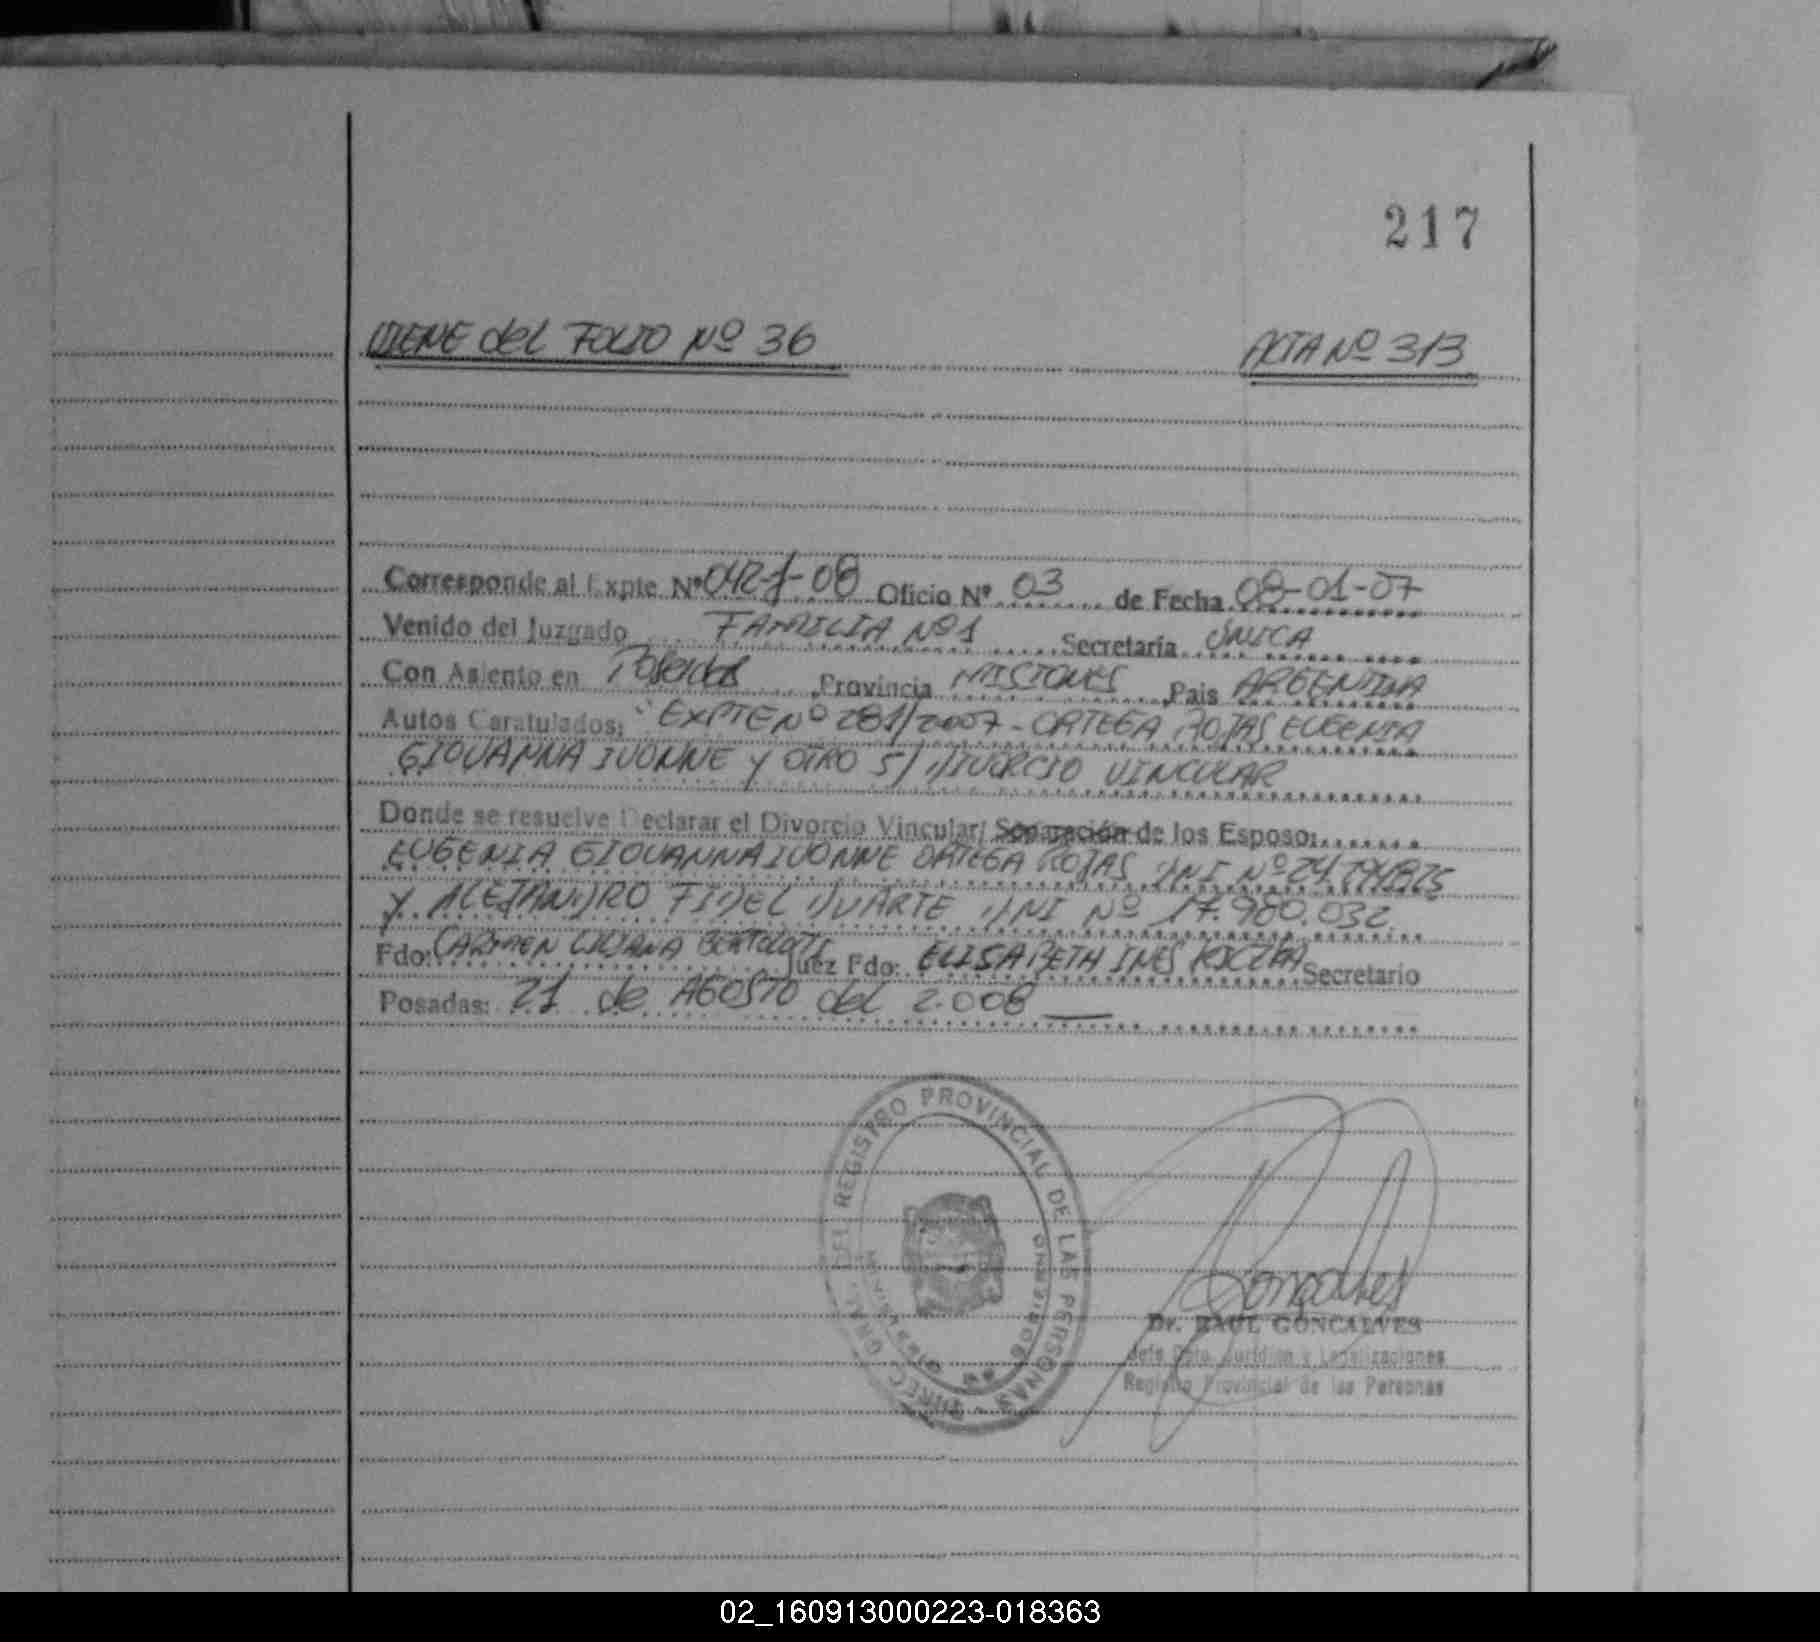 217
VIENE del FOLIO Nº 36 ACTA Nº 313
Corresponde al Expte Nº 0421-08 Oficio Nº 03 de Fecha 08-01-07
Venido del Juzgado FAMILIA Nº 1 Secretaria ÚNICA
Con Asiento en Posadas ,Provincia MISIONES ,Pais ARGENTINA
Autos Caratulados: "EXPTE Nº 281/2007 - ORTEGA ROJAS EUGENIA
GIOVANNA IVONNE y OTRO S/ DIVORCIO VINCULAR
Donde se resuelve Declarar el Divorcio Vincular/ Separación de los Esposo:
EUGENIA GIOVANNA IVONNE ORTEGA ROJAS DNI Nº
y ALEJANDRO FIDEL DUARTE DNI Nº 17.980.032
Fdo: CARMEN LILIANA Juez Fdo: ELISABETH INES Secretario
Posadas: 21 de AGOSTO del 2.008
DIREC. GRAL. DEL REGISTRO PROVINCIAL DE LAS PERSONAS
Goncalves
Dr. RAUL GONCALVES
Jefe Dpto. Juridico y Legalizaciones
Registro Provincial de las Personas
02_160913000223-018363